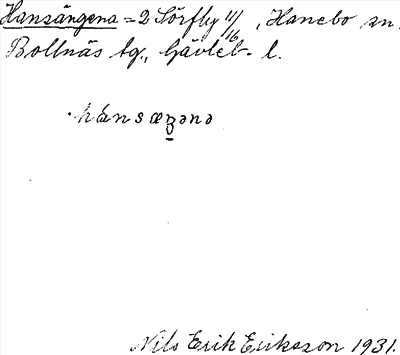 Hansängena = 2 Sörfly 11/16, Hanebo sn.
Bollnäs tg., Gävleb. l.
Nils Erik Eriksson 1931.